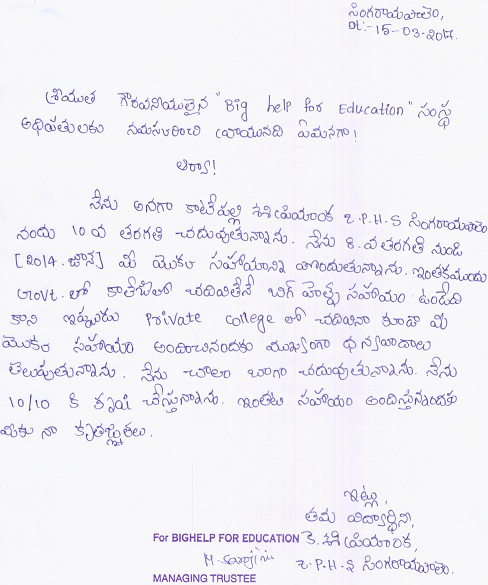 సింగరాయపాలెం,
Dt:-15-03-2017.
శ్రీయుత గౌరవనీయులైన "Big help for Education" సంస్థ
అధిపతులకు నమస్కరించి వ్రాయునది ఏమనగా!
ఆర్యా!
నేను అనగా కాటేపల్లి శశి ప్రియాంక Z.P.H.S సింగరాయపాలెం
నందు 10 వ తరగతి చదువుతున్నాను. నేను 8.వ తరగతి నుండి
[2014.జూన్] మీ యొక్క సహాయాన్ని పొందుతున్నాను. ఇంతకముందు
Govt. లో కాలేజీలో చదివితేనే బిగ్ హెల్ప్ సహాయం ఉండేది
కాని ఇప్పుడు Private College లో చదివినా కూడా మీ
యొక్క సహాయం అందించినందకు ముఖ్యంగా ధన్యవాదాలు
తెలుపుతున్నాను. నేను చాలా బాగా చదువుతున్నాను. నేను
10/10 కి కృషి చేస్తున్నాను. ఇంతటి సహాయం అందిస్తున్నందకు
మీకు నా కృతజ్ఞతలు.
ఇట్లు,
తమ విద్యార్థిని,
For BIGHELP FOR EDUCATION K. శశి ప్రియాంక,
M. Sarojini Z.P.H.S సింగరాయపాలెం.
MANAGING TRUSTEE